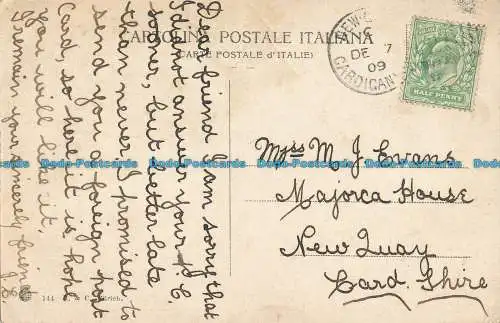 CARTOLINA POSTALE ITALIANA
(CARTE POSTALE d'ITALIE)
Dear friend I am sorry that
I did not answer your P.C
sooner, but better late
than never. I promised to
send you a foreign post
Card, so here it is hope
you will like it.
I remain your sincerely friend
NEW
DE 7
09
CARDIGAN
HALF PENNY
Miss M J Evans
Majorca House
New Quay
Card. Shire
144
Dodo-Postcards